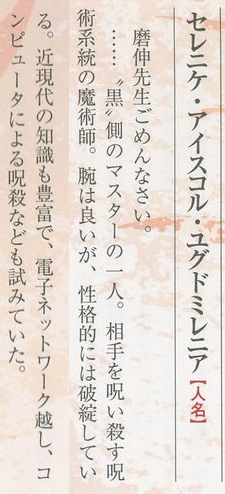 セレニケ・アイスコル・ユグドミレニア【人名】
磨伸先生ごめんなさい。
……〝黒〟側のマスターの一人。相手を呪い殺す呪
術系統の魔術師。腕は良いが、性格的には破綻してい
る。近現代の知識も豊富で、電子ネットワーク越し、コ
ンピュータによる呪殺なども試みていた。